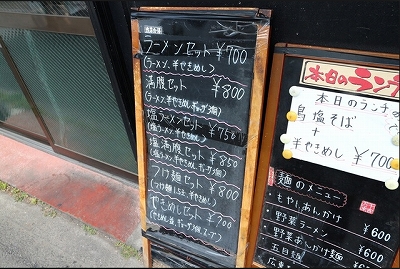 ラーメンセット ¥700
(ラーメン、半やきめし)
満腹セット ¥800
(ラーメン、半やきめし、ギョーザ3個)
塩ラーメンセット ¥750
(塩ラーメン、半やきめし)
塩満腹セット ¥850
(塩ラーメン、半やきめし、ギョーザ3個)
つけ麺セット ¥800
(つけ麺1.5玉、半やきめし)
やきめしセット ¥700
本日のランチ
本日のランチ
鳥塩そば
+
半やきめし ¥700
麺のメニュー
・もやしあんかけ ¥600
・野菜ラーメン ¥600
・野菜あんかけ麺 ¥600
・五目麺
・広東